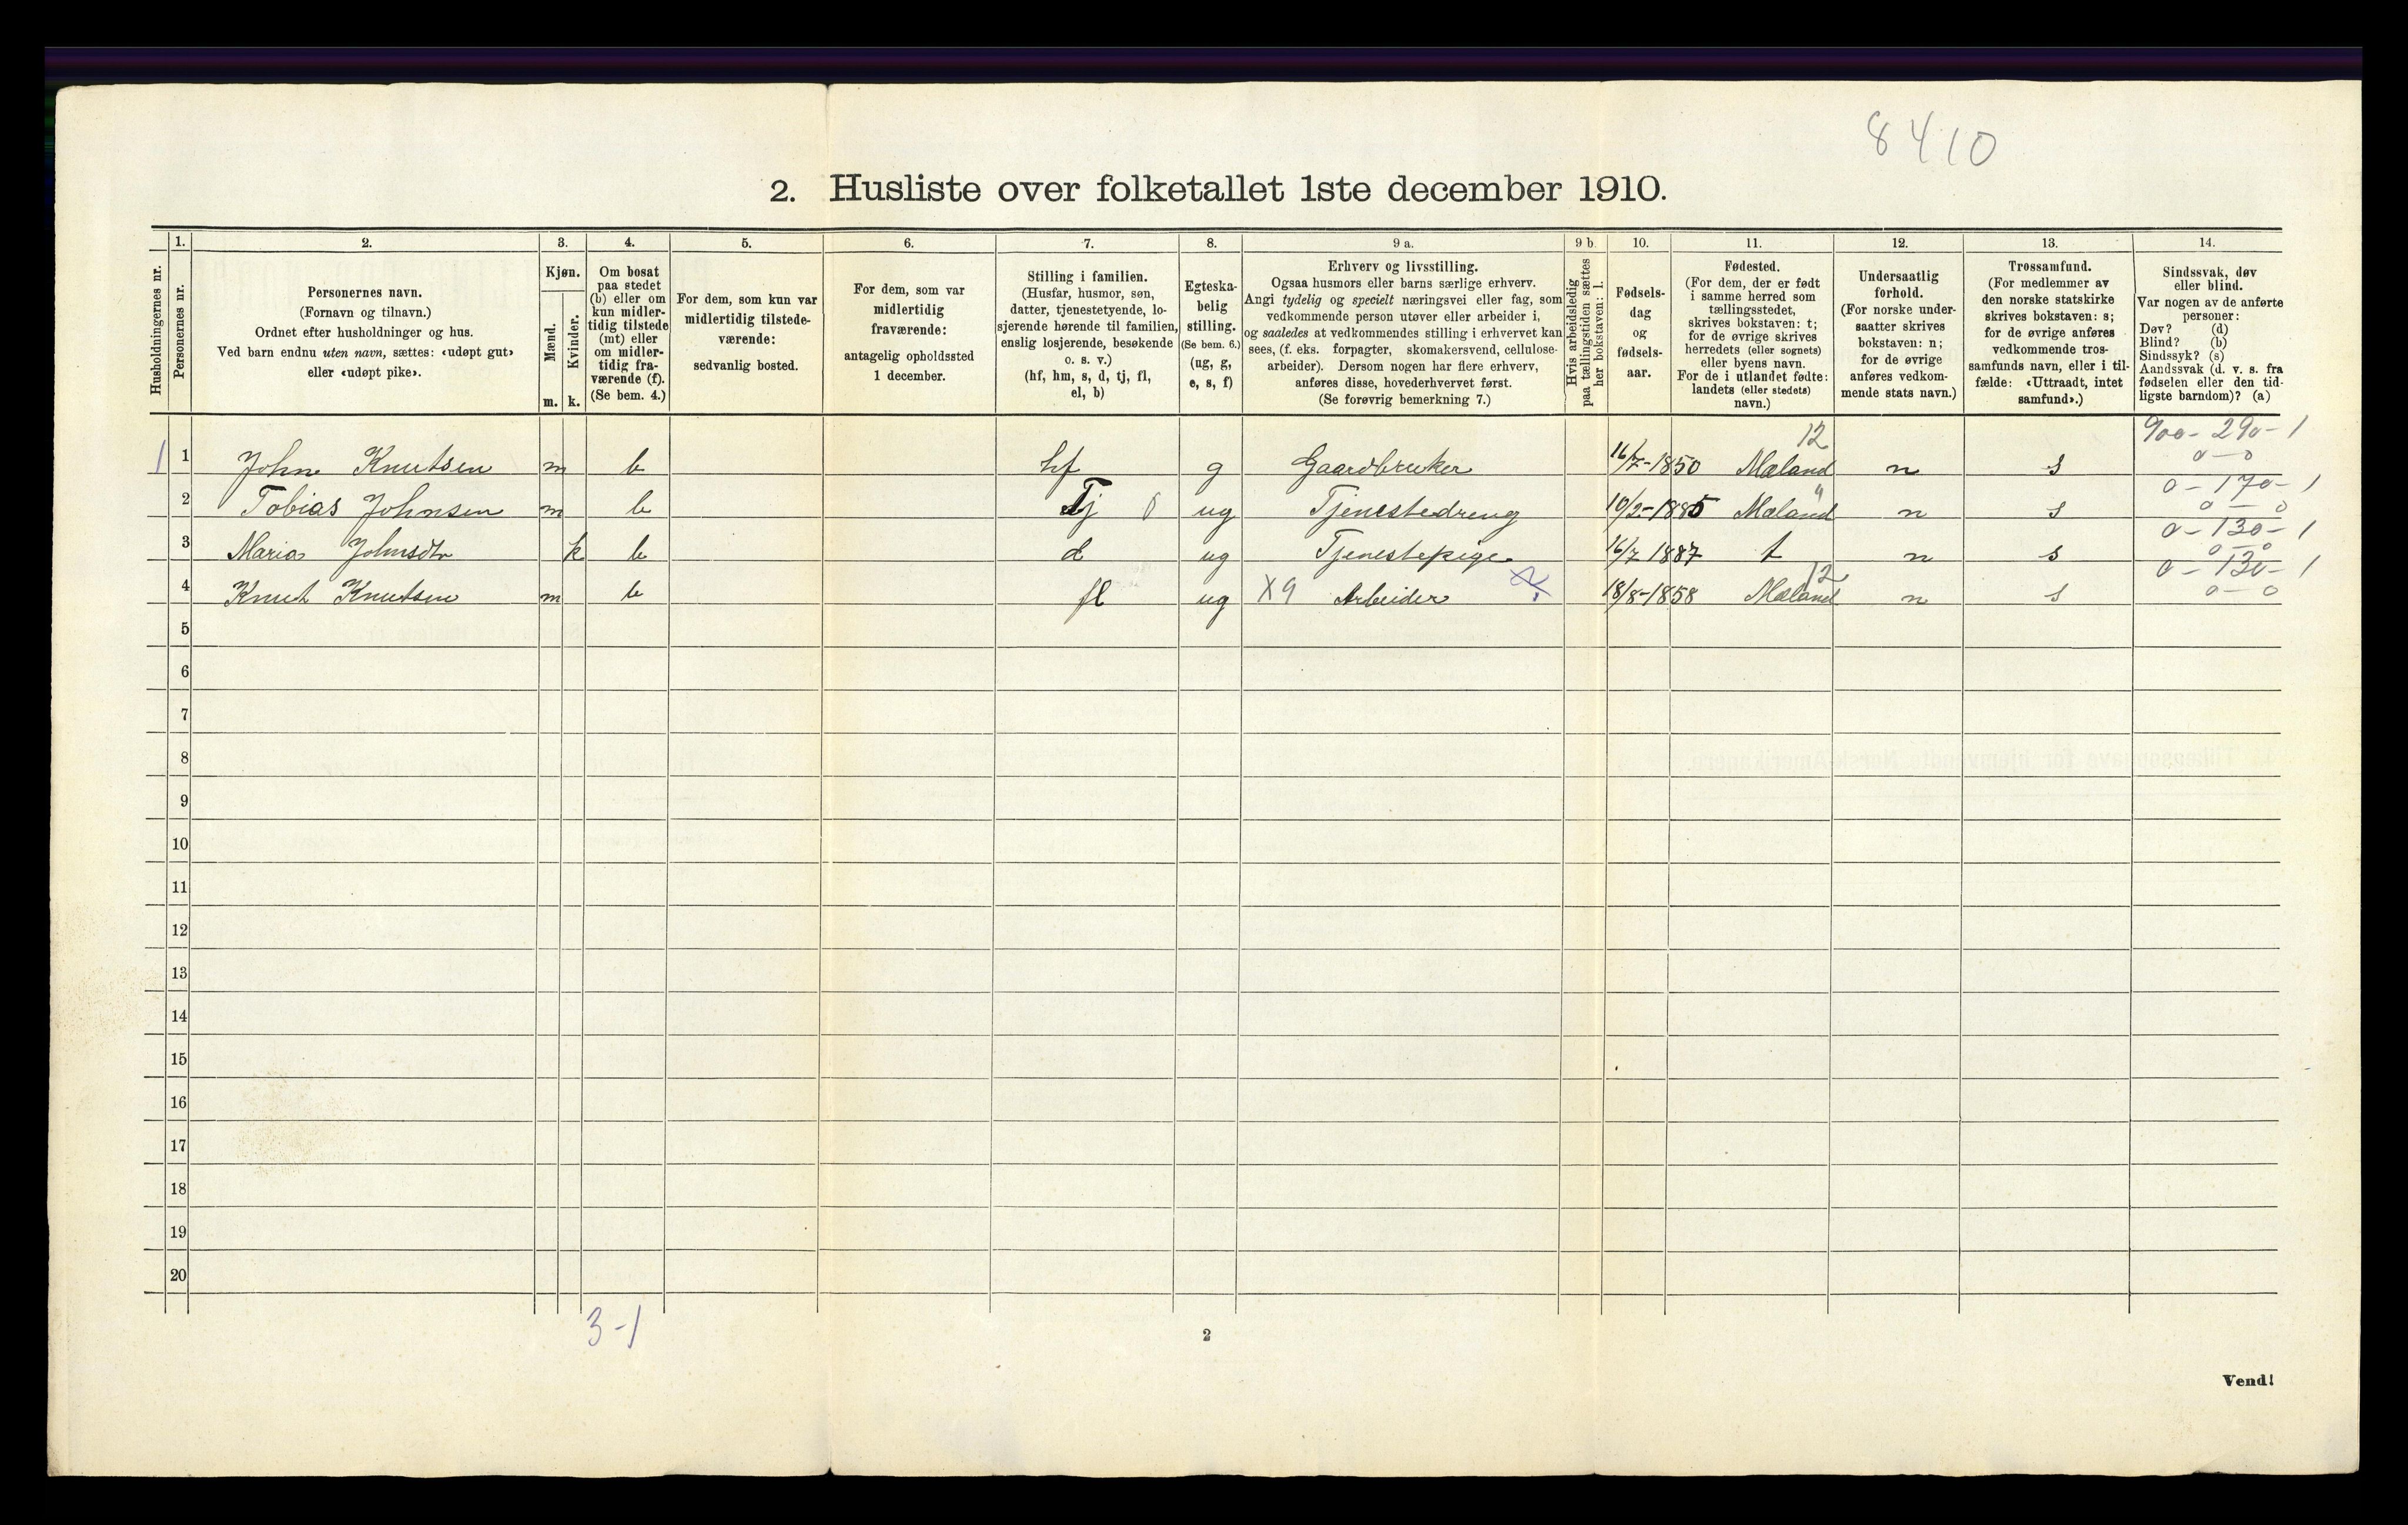 8410
2. Husliste over folketallet 1ste december 1910.
Husholdningernes nr.
1.
Personernes nr.
2.
Personernes navn.
(Fornavn og tilnavn.)
Ordnet efter husholdninger og hus.
Ved barn endnu uten navn, sættes: «udøpt gut»
eller «udøpt pike».
3.
Kjøn.
Mænd.
Kvinder.
m. k.
4.
Om bosat
paa stedet
(b) eller om
kun midler-
tidig tilstede
(mt) eller
om midler-
tidig fra-
værende (f).
(Se bem. 4.)
5.
For dem, som kun var
midlertidig tilstede-
værende:
sedvanlig bosted.
6.
For dem, som var
midlertidig
fraværende:
antagelig opholdssted
1 december.
7.
Stilling i familien.
(Husfar, husmor, søn,
datter, tjenestetyende, lo-
sjerende hørende til familien,
enslig losjerende, besøkende
o. s. v.)
(hf, hm, s, d, tj, fl,
el, b)
8.
Egteska-
belig
stilling.
(Se bem. 6.)
(ug, g,
e, s, f)
9 a.
Erhverv og livsstilling.
Ogsaa husmors eller barns særlige erhverv.
Angi tydelig og specielt næringsvei eller fag, som
vedkommende person utøver eller arbeider i,
og saaledes at vedkommendes stilling i erhvervet kan
sees, (f. eks. forpagter, skomakersvend, cellulose-
arbeider). Dersom nogen har flere erhverv,
anføres disse, hovederhvervet først.
(Se forøvrig bemerkning 7.)
9 b.
Hvis arbeidsledig
paa tællingstiden sættes
her bokstaven: l.
10.
Fødsels-
dag
og
fødsels-
aar.
11.
Fødested.
(For dem, der er født
i samme herred som
tællingsstedet,
skrives bokstaven: t;
for de øvrige skrives
herredets (eller sognets)
eller byens navn.
For de i utlandet fødte:
landets (eller stedets)
navn.)
12.
Undersaatlig
forhold.
(For norske under-
saatter skrives
bokstaven: n;
for de øvrige
anføres vedkom-
mende stats navn.)
13.
Trossamfund.
(For medlemmer av
den norske statskirke
skrives bokstaven: s;
for de øvrige anføres
vedkommende tros-
samfunds navn, eller i til-
fælde: «Uttraadt, intet
samfund».)
14.
Sindssvak, døv
eller blind.
Var nogen av de anførte
personer:
Døv? (d)
Blind? (b)
Sindssyk? (s)
Aandssvak (d. v. s. fra
fødselen eller den tid-
ligste barndom)? (a)
12 900-290-1
1 1 John Knutsen m b hf g Gaardbruker 16/7-1850 Mæland n s 0-0
" 0-170-1
2 Tobias Johnsen m b Tj ug Tjenestedreng 10/2-1885 Mæland n s 0-0
0-130-1
3 Maria Johnsdtr k b d ug Tjenestepige 16/7 1887 t n s 0-0
12 0-130-1
4 Knut Knutsen m b fl ug X9 Arbeider 18/8-1858 Mæland n s 0-0
5
6
7
8
9
10
11
12
13
14
15
16
17
18
19
20
3-1
2
Vend!